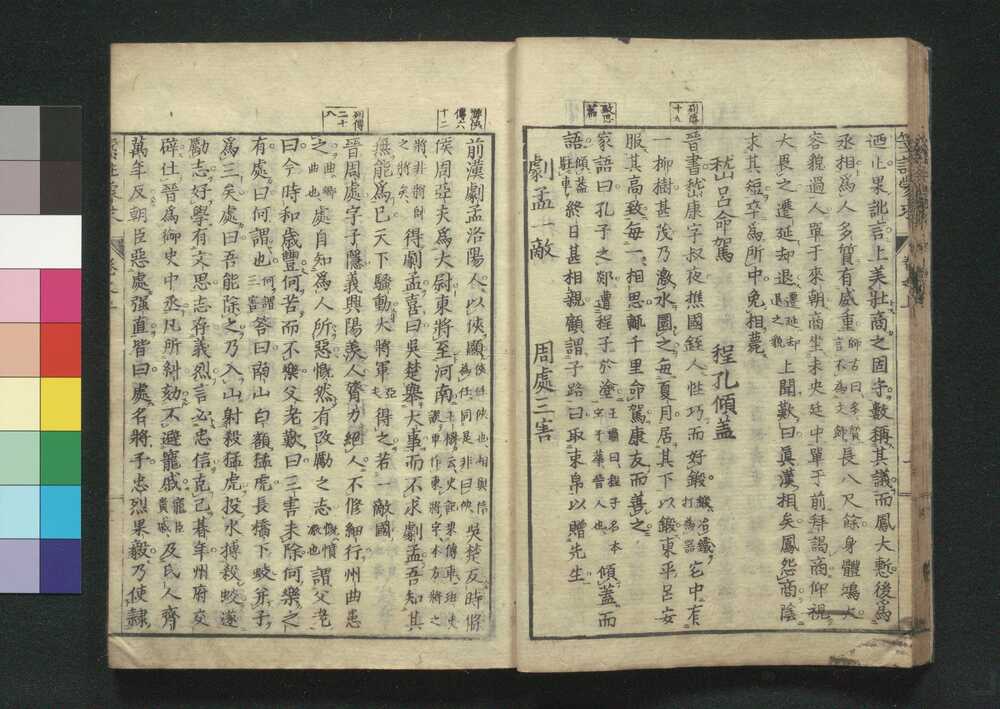 迺止果訛言上美壯商之固守數稱其議而鳳大慙後爲
丞相爲人多質有威重師古曰多質言不爲文飾長八尺餘身體鴻大
容貌過人單于來朝商坐未央廷中單于前拜謁商仰視
大畏之遷延却退遷延却退之貌上聞歎曰眞漢相矣鳳怨商陰
求其短卒爲所中免相薨
嵇呂命駕 程孔傾蓋
列傳十九
晉書嵇康字叔夜譙國銍人性巧而好鍛鍛冶鐵打爲器宅中有
一柳樹甚茂乃激水圜之每夏月居其下以鍛東平呂安
服其高致每一相思輒千里命駕康友而善之
致思篇
家語曰孔子之郯遭程子於塗王肅曰程子名本字子華晉人也傾蓋而
語傾蓋駐車終日甚相親顧謂子路曰取束帛以贈先生
劇孟一敵 周處三害
游俠傳六十二
前漢劇孟洛陽人以俠顯吳楚反時條
侯周亞夫爲大尉東將至河南
得劇孟喜曰吳楚舉大事而不求劇孟吾知其
無能爲已天下騷動大將軍得之若一敵國
列傳二十八
晉周處字子隱義興陽羨人膂力絕人不修細行州曲患
之處自知爲人所惡慨然有改勵之志謂父老
曰今時和歲豐何苦而不樂父老歎曰三害未除何樂之
有處曰何謂也何謂三害答曰南山白額猛虎長橋下蛟并子
爲三矣處曰吾能除之乃入山射殺猛虎投水搏殺蛟遂
勵志好學有文思志存義烈言必忠信克己朞年州府交
辟仕晉爲御史中丞凡所糾劾不避寵戚寵臣貴戚及氐人齊
萬年反朝臣惡處强直皆曰處名將子忠烈果毅乃使隸